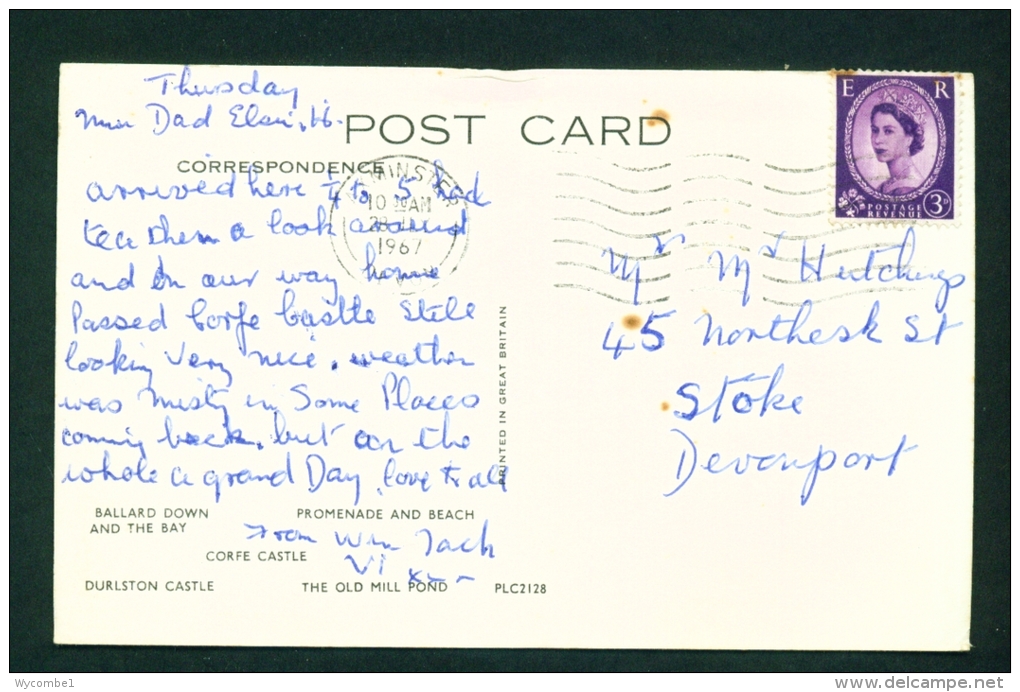 Thursday
Dad
POST CARD
CORRESPONDENCE
arrived here to 5 had
tea then a look around
and on our way home
Passed Corfe Castle Still
looking very nice. weather
was Misty in Some Places
coming back. but on the
whole a grand Day. love to all
From Win Jack
Vi
BALLARD DOWN
AND THE BAY
PROMENADE AND BEACH
CORFE CASTLE
DURLSTON CASTLE
THE OLD MILL POND
PLC2128
PRINTED IN GREAT BRITAIN
10 AM
28
1967
E R
POSTAGE
REVENUE
3D
Mr Mrs Hutchings
45 Northesk St
Stoke
Devonport
Wycombe1
www.delcampe.net